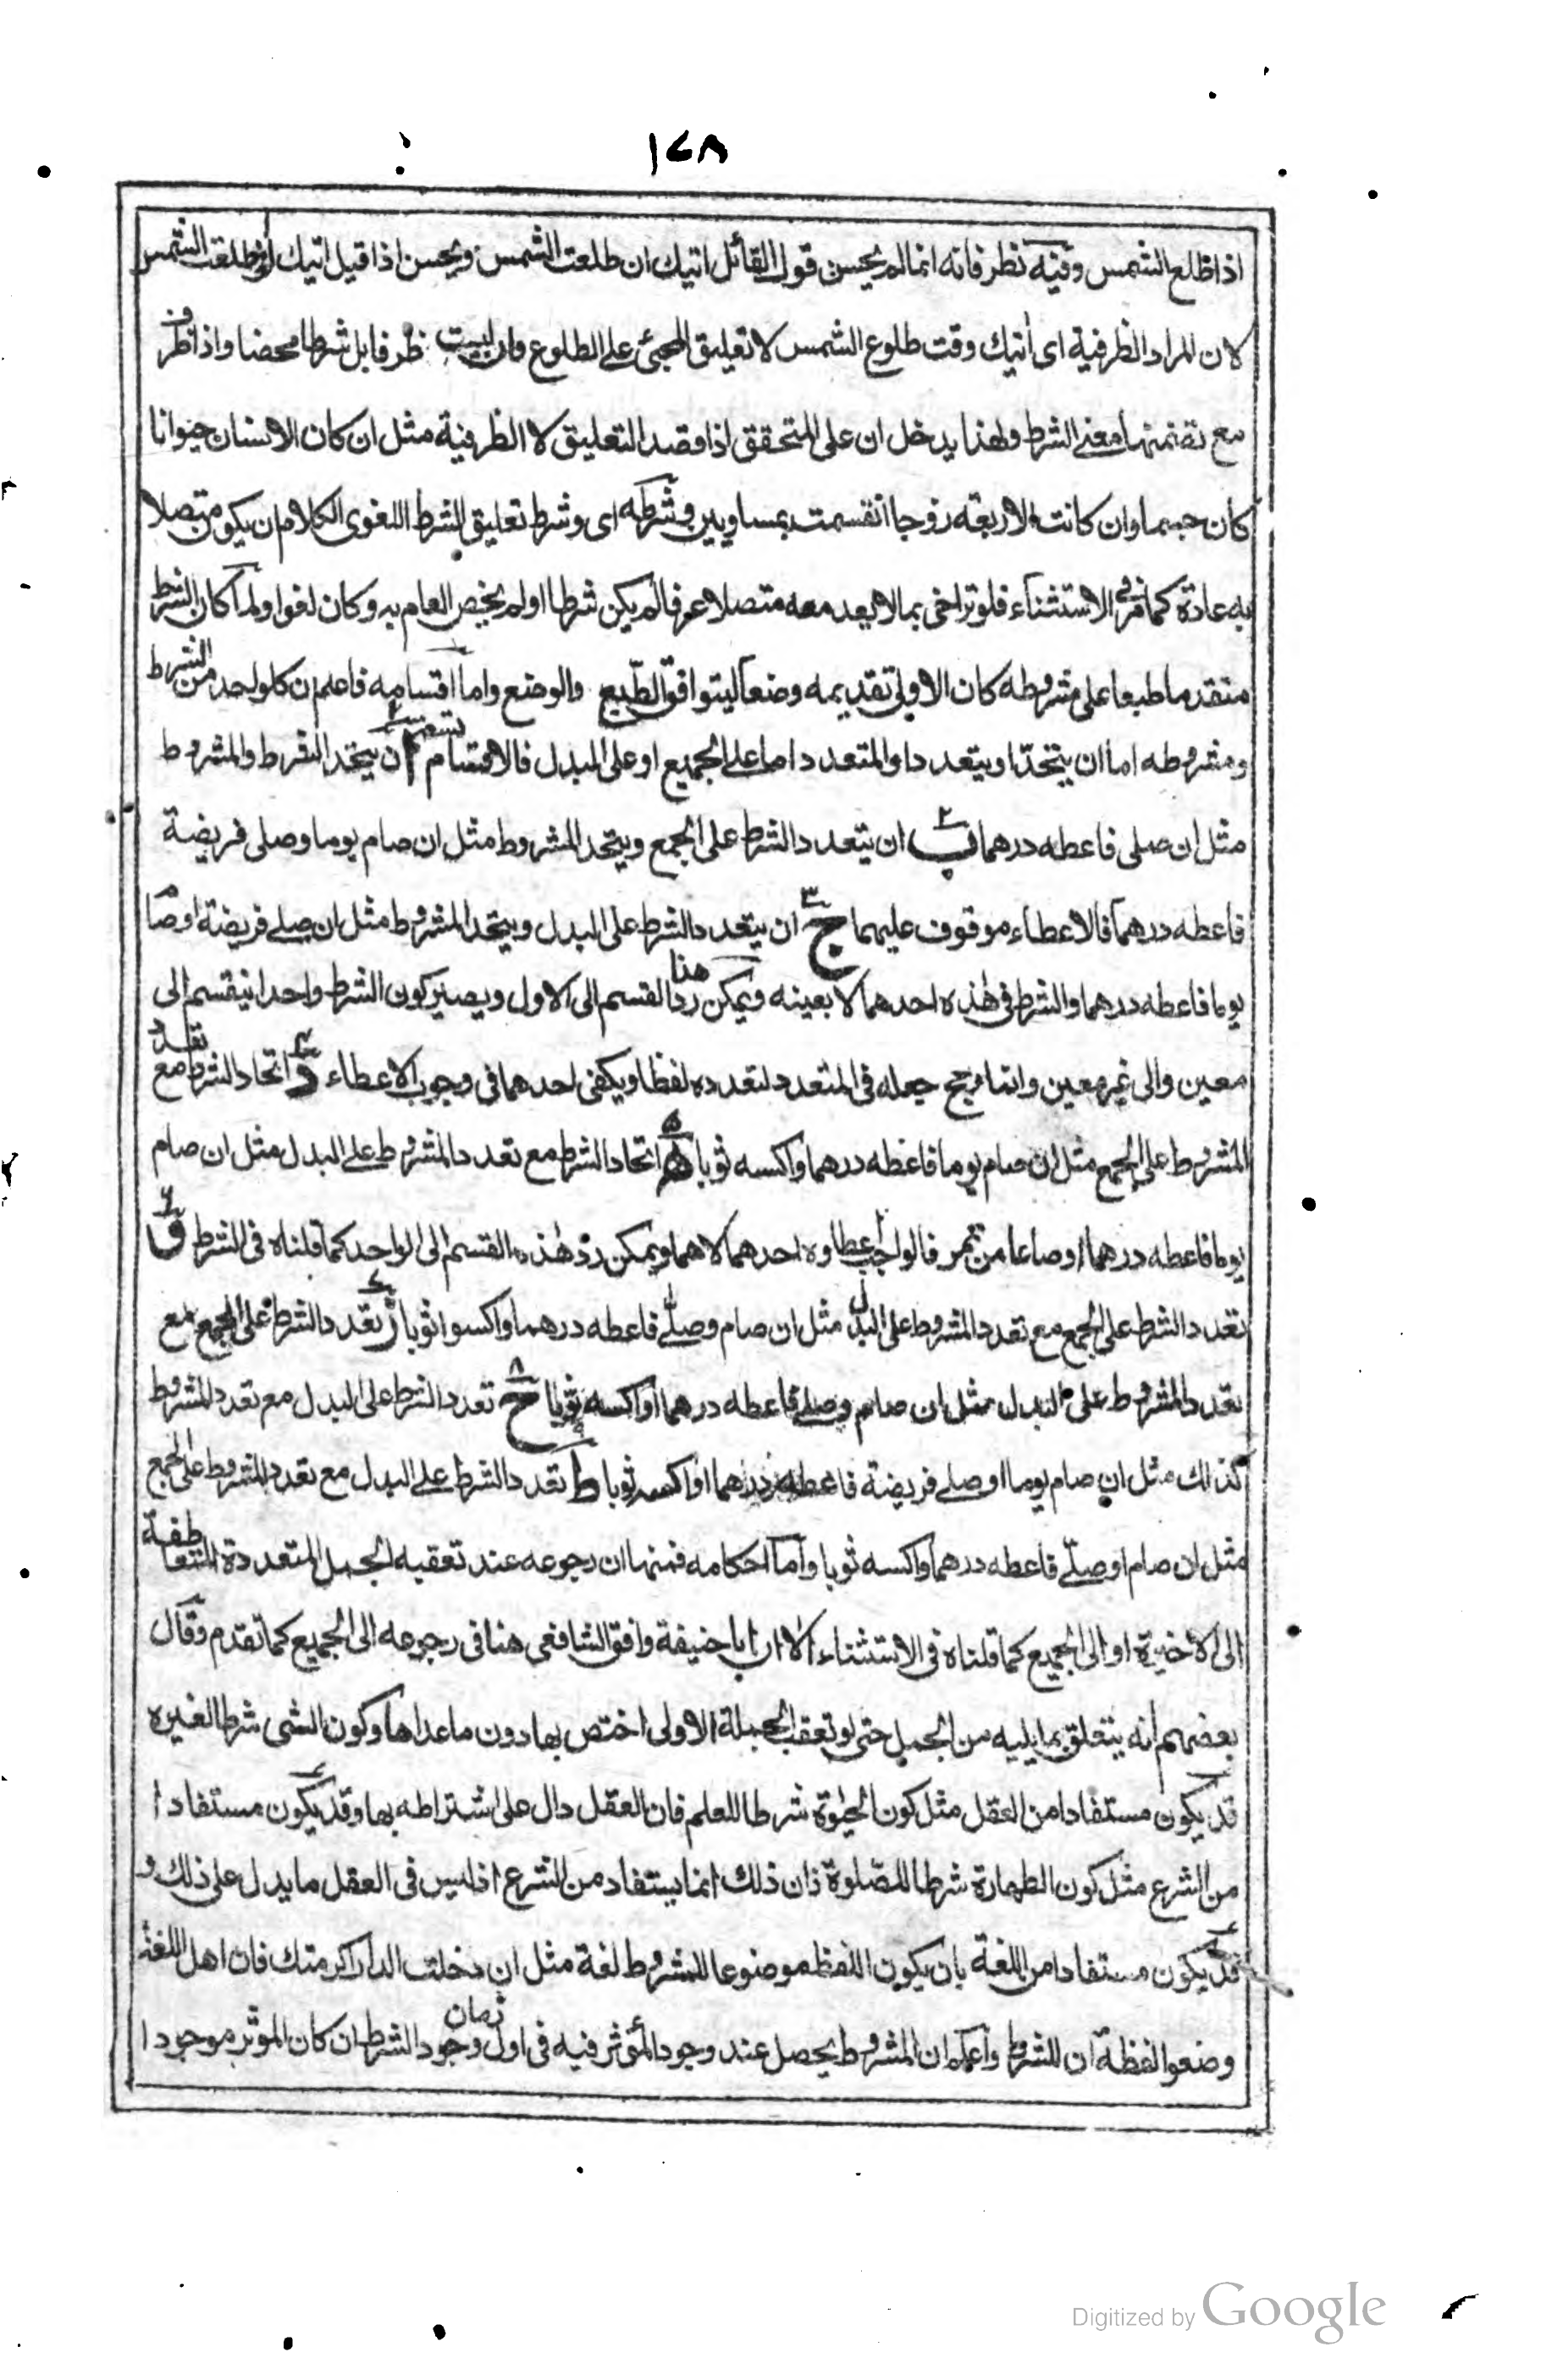 ١٤٨
اذا طلع الشمس وفيه نظر فانه انما لم يحسن قول القائل اتيك ان طلعت الشمس ويحسن اذا قيل اتيك اذا طلعت الشمس
لان المراد الظرفية اى أتيك وقت طلوع الشمس لا تعليق المجئ على الطلوع وان ليست ظرفا بل شرطا محضا واذا ظرف
مع تضمنها معنى الشرط ولهذا يدخل ان على المتحقق اذا قصد التعليق لا الظرفية مثل ان كان الانسان حيوانا
كان جسما وان كانت الاربعة زوجا انقسمت بمساويين وشرطه اى وشرط تعليق الشرط اللغوى الكلام ان يكون متصلا
به عادة كما مر فى الاستثناء فلو تراخى بما لا يعد معه متصلا عرفا لم يكن شرطا اولم يخص العام به وكان لغوا ولما كان الشرط
متقدما طبعا على مشروطه كان الاولى تقديمه وضعا ليتوافق الطبع والوضع واما اقسامه فاعلم ان كلو احد من الشرط
ومشروطه اما ان يتحدا ويتعددا والمتعدد اما على الجميع او على البدل فالاقسام تسعة ا ان يتحد الشرط والمشروط
مثل ان صلى فاعطه درهما ب ان يتعدد الشرط على الجمع ويتحد المشروط مثل ان صام يوما وصلى فريضة
فاعطه درهما فالاعطاء موقوف عليهما ج ان يتعدد الشرط على البدل ويتحد المشروط مثل ان صلى فريضة او صام
يوما فاعطه درهما والشرط فى هذه احدهما لا بعينه ويمكن رد هذا القسم الى الاول ويصير كون الشرط واحدا ينقسم الى
معين والى غير معين وانما رجح جعله فى المتعدد لتعدده لفظا ويكفى احدهما فى وجوب الاعطاء د اتحاد الشرط مع تعدد
المشروط على الجمع مثل ان صام يوما فاعطه درهما واكسه ثوبا ه اتحاد الشرط مع تعدد المشروط على البدل مثل ان صام
يوما فاعطه درهما اوصاعا من تمر فالواجب اعطاوه احدهما لاهما ويمكن رد هذه القسم الى الواحد كما قلناه فى الشرط و
تعدد الشرط على الجمع مع تعدد المشروط على البدل مثل ان صام وصلى فاعطه درهما واكسوا ثوبا ز تعدد الشرط على الجمع مع
تعدد المشروط على البدل مثل ان صام وصلى فاعطه درهما او اكسه ثوبا ح تعدد الشرط على البدل مع تعدد المشروط
كذلك مثل ان صام يوما او صلى فريضة فاعطه درهما او اكسه ثوبا ط تعدد الشرط على البدل مع تعدد المشروط على الجمع
مثل ان صام او صلى فاعطه درهما واكسه ثوبا واما احكامه فمنها ان رجوعه عند تعقبه الجمل المتعددة المتعاطفة
الى الاخيرة او الى الجميع كما قلناه فى الاستثناء الا ان ابا حنيفة وافق الشافعى هنا فى رجوعه الى الجميع كما تقدم وقال
بعضهم انه يتعلق بما يليه من الجمل حتى لو تعقب الجملة الاولى اختص بها دون ما عداها وكون الشى شرطا لغيره
قد يكون مستفادا من العقل مثل كون الحيوة شرطا للعلم فان العقل دال على اشتراطه بها وقد يكون مستفادا
من الشرع مثل كون الطهارة شرطا للصلوة فان ذلك انما يستفاد من الشرع اذ ليس فى العقل ما يدل على ذلك و
قد يكون مستفادا من اللغة بان يكون اللفظ موضوعا للشروط لغة مثل ان دخلت الدار اكرمتك فان اهل اللغة
وضعوا لفظة ان للشرط واعلم ان المشروط يحصل عند وجود المؤثر فيه فى اول زمان وجود الشرط ان كان الموثر موجودا
Digitized by Google